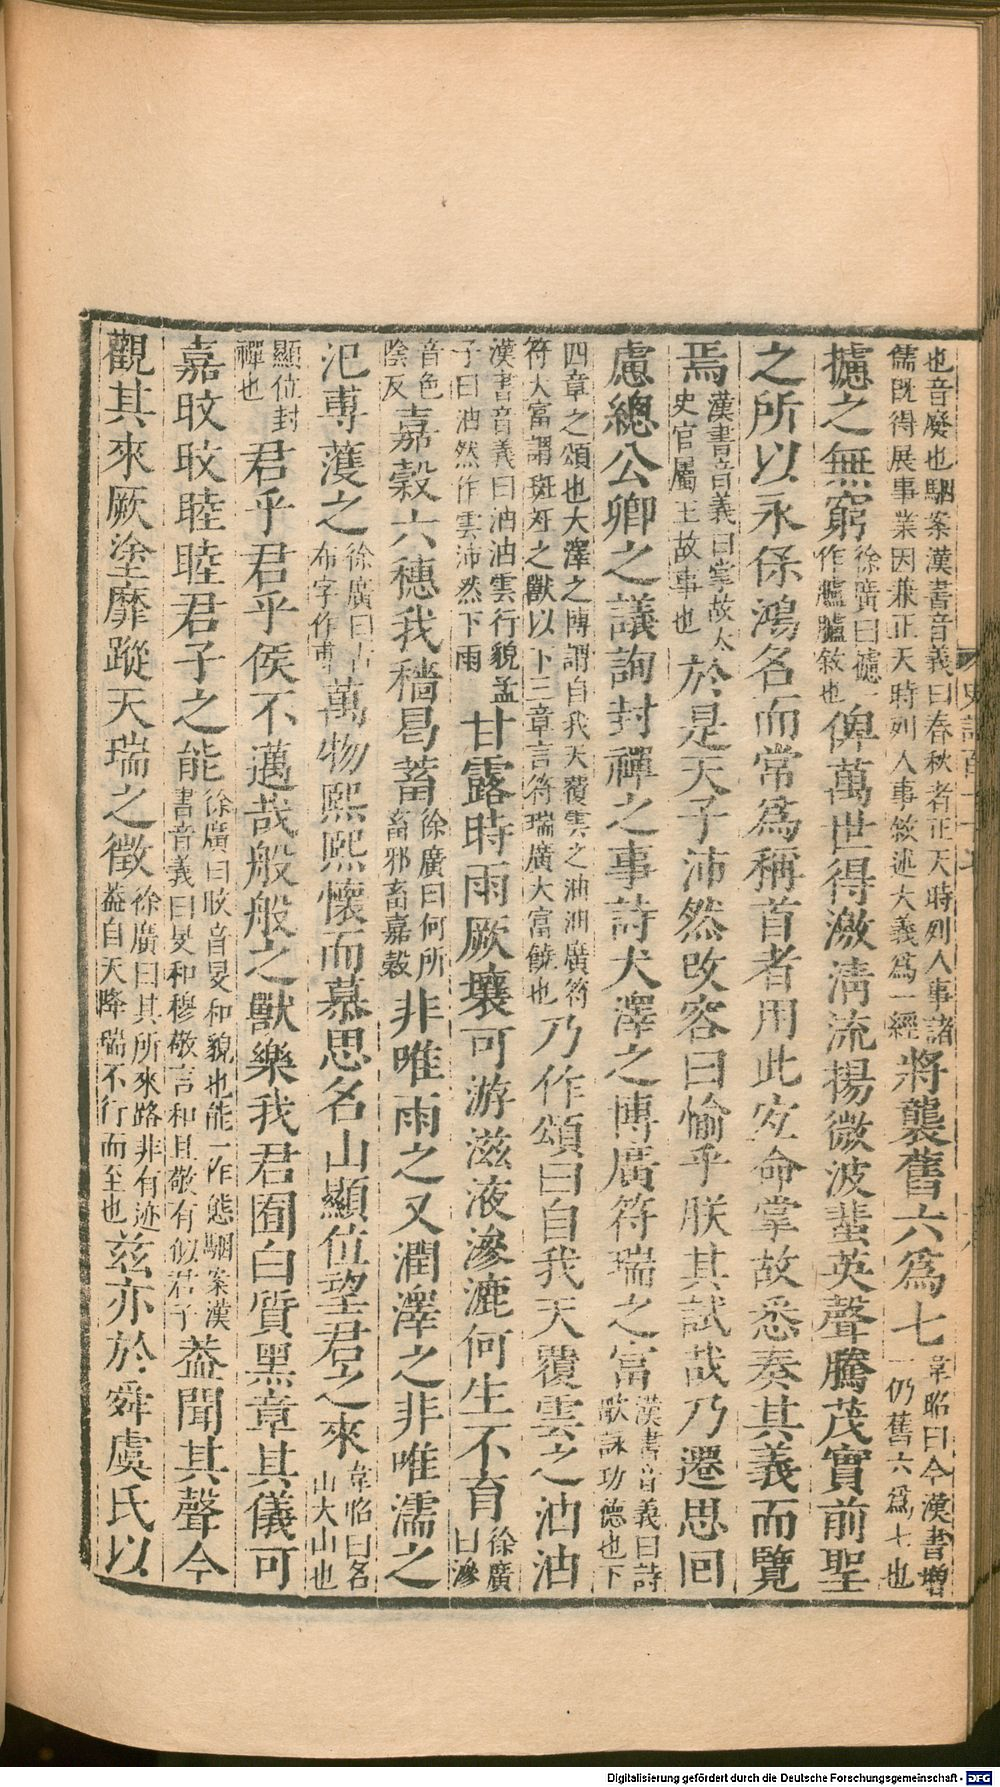 也音廢也駰案漢書音義曰春秋者正天時列人事諸
儒旣得展事業因兼正天時列人事敘述大義爲一經
將襲舊六爲七
韋昭曰今漢書增
一仍舊六爲七也
攄之無窮
徐廣曰攄一
作臚臚敘也
俾萬世得激淸流揚微波蜚英聲騰茂實前聖
之所以永保鴻名而常爲稱首者用此宜命掌故悉奏其義而覽
焉
漢書音義曰掌故太
史官屬主故事也
於是天子沛然改容曰愉乎朕其試哉乃遷思回
慮總公卿之議詢封禪之事詩大澤之博廣符瑞之富
漢書音義曰詩
歌詠功德也下
四章之頌也大澤之博謂自我天覆雲之油油廣符
符大富謂斑斑之獸以下三章言符瑞廣大富饒也
乃作頌曰自我天覆雲之油油
漢書音義曰油油雲行貌孟
子曰油然作雲沛然下雨
甘露時雨厥壤可游滋液滲漉何生不育
徐廣
曰滲
音色
陰反
嘉穀六穗我穡曷蓄
徐廣曰何所
畜邪畜嘉穀
非唯雨之又潤澤之非唯濡之
氾尃濩之
徐廣曰古
布字作尃
萬物熙熙懷而慕思名山顯位望君之來
韋昭曰名
山大山也
顯位封
禪也
君乎君乎侯不邁哉般般之獸樂我君囿白質黑章其儀可
嘉旼旼睦睦君子之能
徐廣曰旼音旻和貌也能一作態駰案漢
書音義曰旻和穆敬言和且敬有似君子
葢聞其聲今
觀其來厥塗靡蹤天瑞之徵
徐廣曰其所來路非有迹
葢自天降瑞不行而至也
茲亦於舜虞氏以
Digitalisierung gefördert durch die Deutsche Forschungsgemeinschaft - DFG